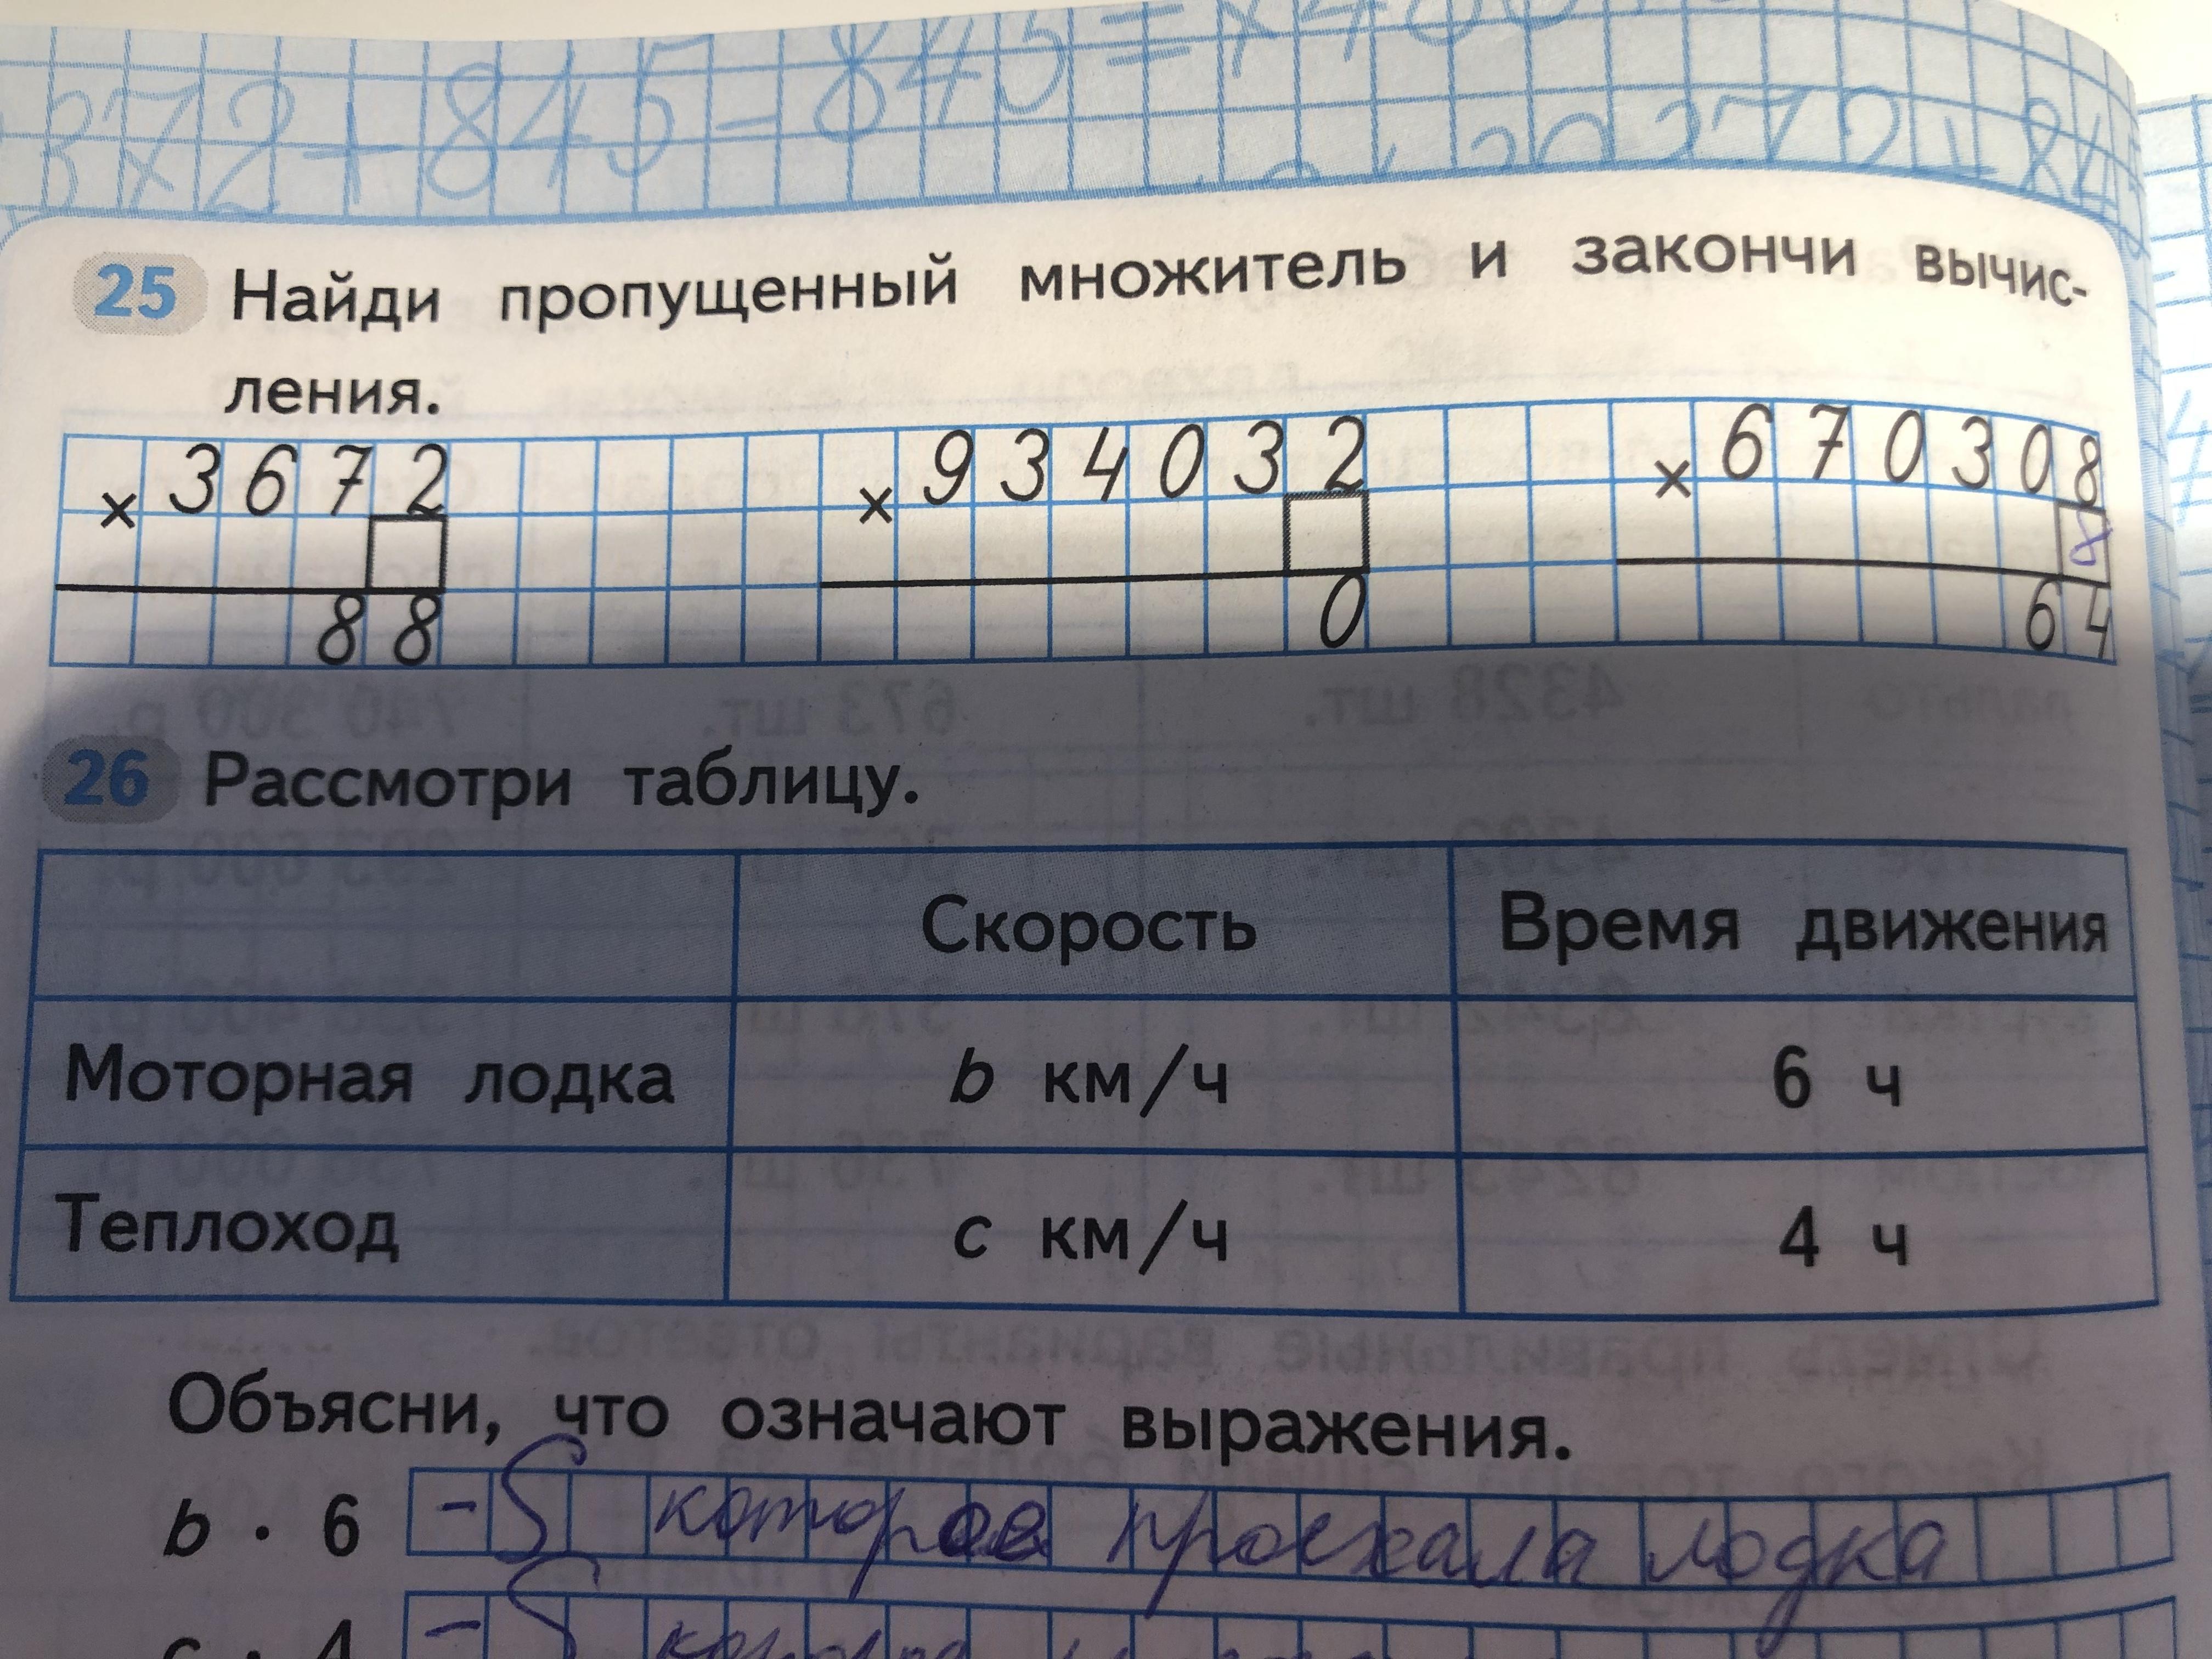 372+845-845=
20372+84
25 Найди пропущенный множитель и закончи вычис-
ления.
× 3672 × 934032 × 670308
8
88 0 64
26 Рассмотри таблицу.
Скорость Время движения
Моторная лодка b км/ч 6 ч
Теплоход c км/ч 4 ч
Объясни, что означают выражения.
b · 6 - S которое проехала лодка
c · 4 - S